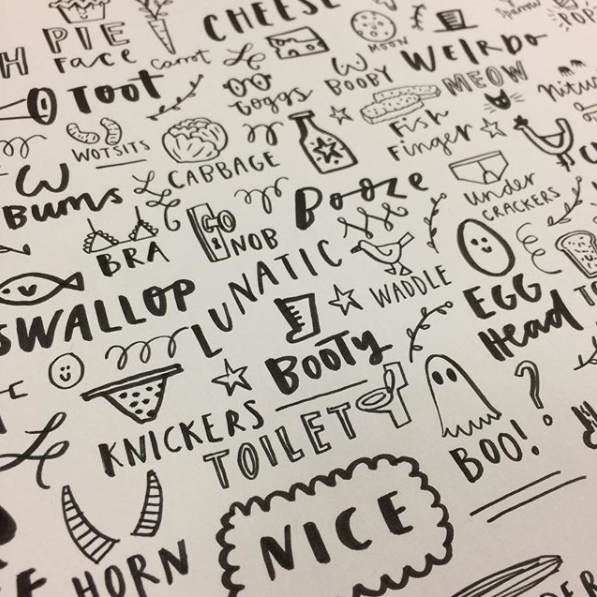 CHEESE
PIE
Face
Carrot
MOON
WeIrDo
Sparrow
POP
H
TOOT
Goggs
BOOBY
MEOW
WOTSITS
CABBAGE
Fish
Finger
Bums
Booze
under
CRACKERS
BRA
NOB
LUNATIC
WADDLE
EGG
Head
SWALLOP
Booty
KNICKERS
TOILET
BOO!?
HORN
NICE